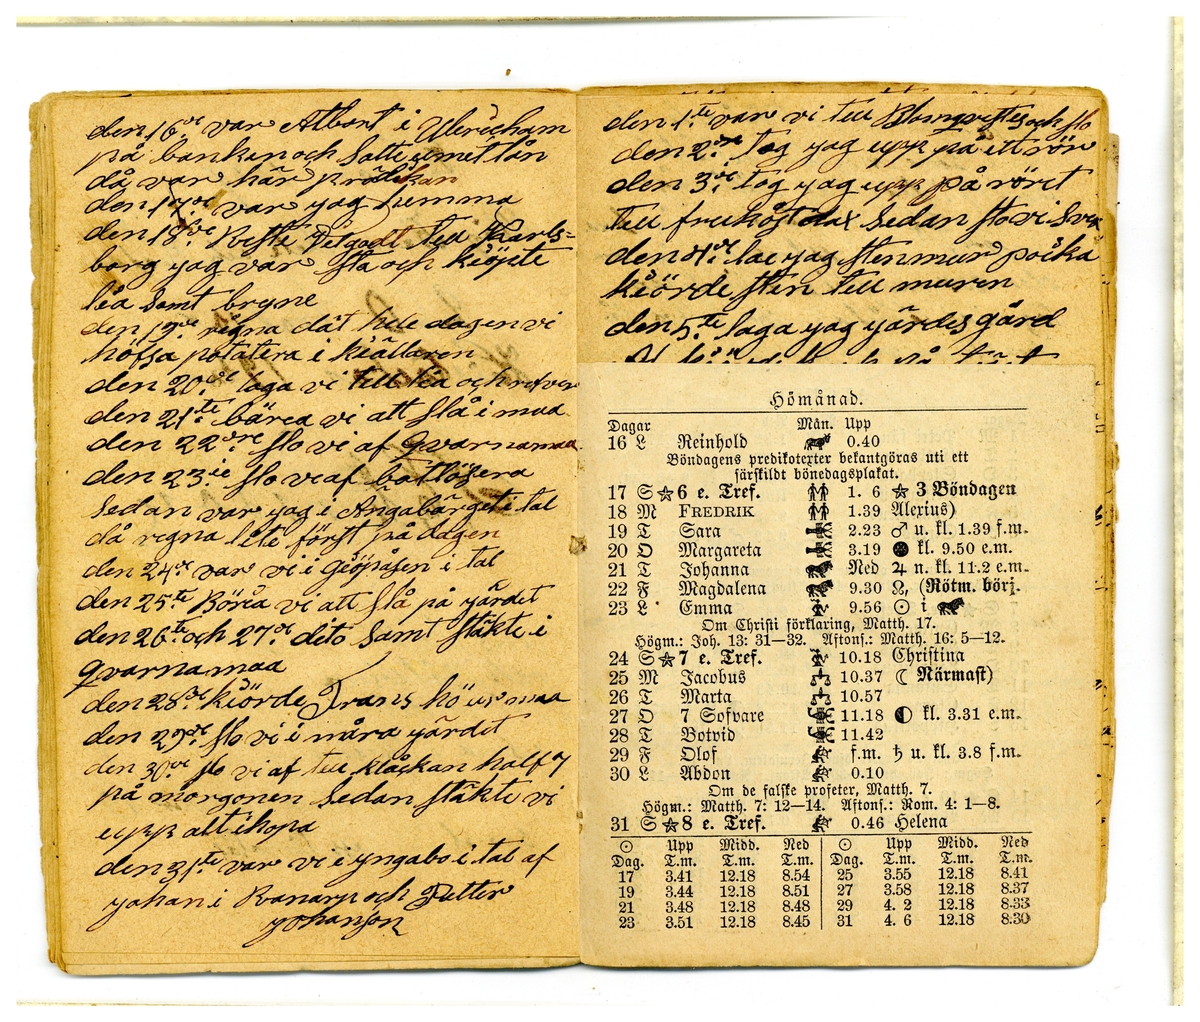 den 16de var Albert i Ulrecham
på banken och Satte umet lån
då var här prädikan
den 17de var yag hemma
den 18de Reste Petgodt till Karls-
borg yag var sta och kiöpte
lia samt bryne
den 19de regna dät hele dagen vi
höfsa potatera i kiällaren
den 20de laga vi till lia och refver
den 21te bärea vi att slå i maa
den 22dre slo vi af qvarnamaa
den 23ie slo vi af båtlösera
Sedan var yag i Angabärget i tal
då regna lite först på dagen
den 24de var vi i Giöpåsen i tal
den 25te Böria vi att slå på gärdet
den 26te och 27de dito Samt stäkte i
qvarnamaa
den 28de kiörde Frans hö ur maa
den 29de slo vi i måra yärdet
den 30de slo vi af till klåckan half 7
på morgonen Sedan stäkte vi
upp alt ihopa
den 31te var vi i yngabo i tal af
yohan i Ranarp och Petter
yohanson
den 1te var vi till Blomqvistes och slo
den 2dre tog yag upp på ett rör
den 3de tog yag upp på röret
till frukåstdax Sedan slo vi Svi
den 4de lae yag stenmur poika
kiörde sten till muren
den 5te laga yag yärdesgård
Hömånad.
Dagar Mån. Upp
16 L Reinhold 0.40
Böndagens predikotexter bekantgöras uti ett
särskildt bönedagsplakat.
17 S ☆ 6 e. Tref. 1. 6 ☆ 3 Böndagen
18 M FREDRIK 1.39 Alexius)
19 T Sara 2.23 ♂ u. kl. 1.39 f.m.
20 O Margareta 3.19 ● kl. 9.50 e.m.
21 T Johanna Ned ♃ n. kl. 11.2 e.m.
22 F Magdalena 9.30 ☊, (Rötm. börj.
23 L Emma 9.56 ☉ i ♌
Om Christi förklaring, Matth. 17.
Högm.: Joh. 13: 31—32. Aftons.: Matth. 16: 5—12.
24 S ☆ 7 e. Tref. 10.18 Christina
25 M Jacobus 10.37 ☾ Närmast)
26 T Marta 10.57
27 O 7 Sofvare 11.18 ◐ kl. 3.31 e.m.
28 T Botvid 11.42
29 F Olof f.m. ♄ u. kl. 3.8 f.m.
30 L Abdon 0.10
Om de falske profeter, Matth. 7.
Högm.: Matth. 7: 12—14. Aftons.: Rom. 4: 1—8.
31 S ☆ 8 e. Tref. 0.46 Helena
☉ Upp Midd. Ned ☉ Upp Midd. Ned
Dag. T.m. T.m. T.m. Dag. T.m. T.m. T.m.
17 3.41 12.18 8.54 25 3.55 12.18 8.41
19 3.44 12.18 8.51 27 3.58 12.18 8.37
21 3.48 12.18 8.48 29 4. 2 12.18 8.33
23 3.51 12.18 8.45 31 4. 6 12.18 8.30